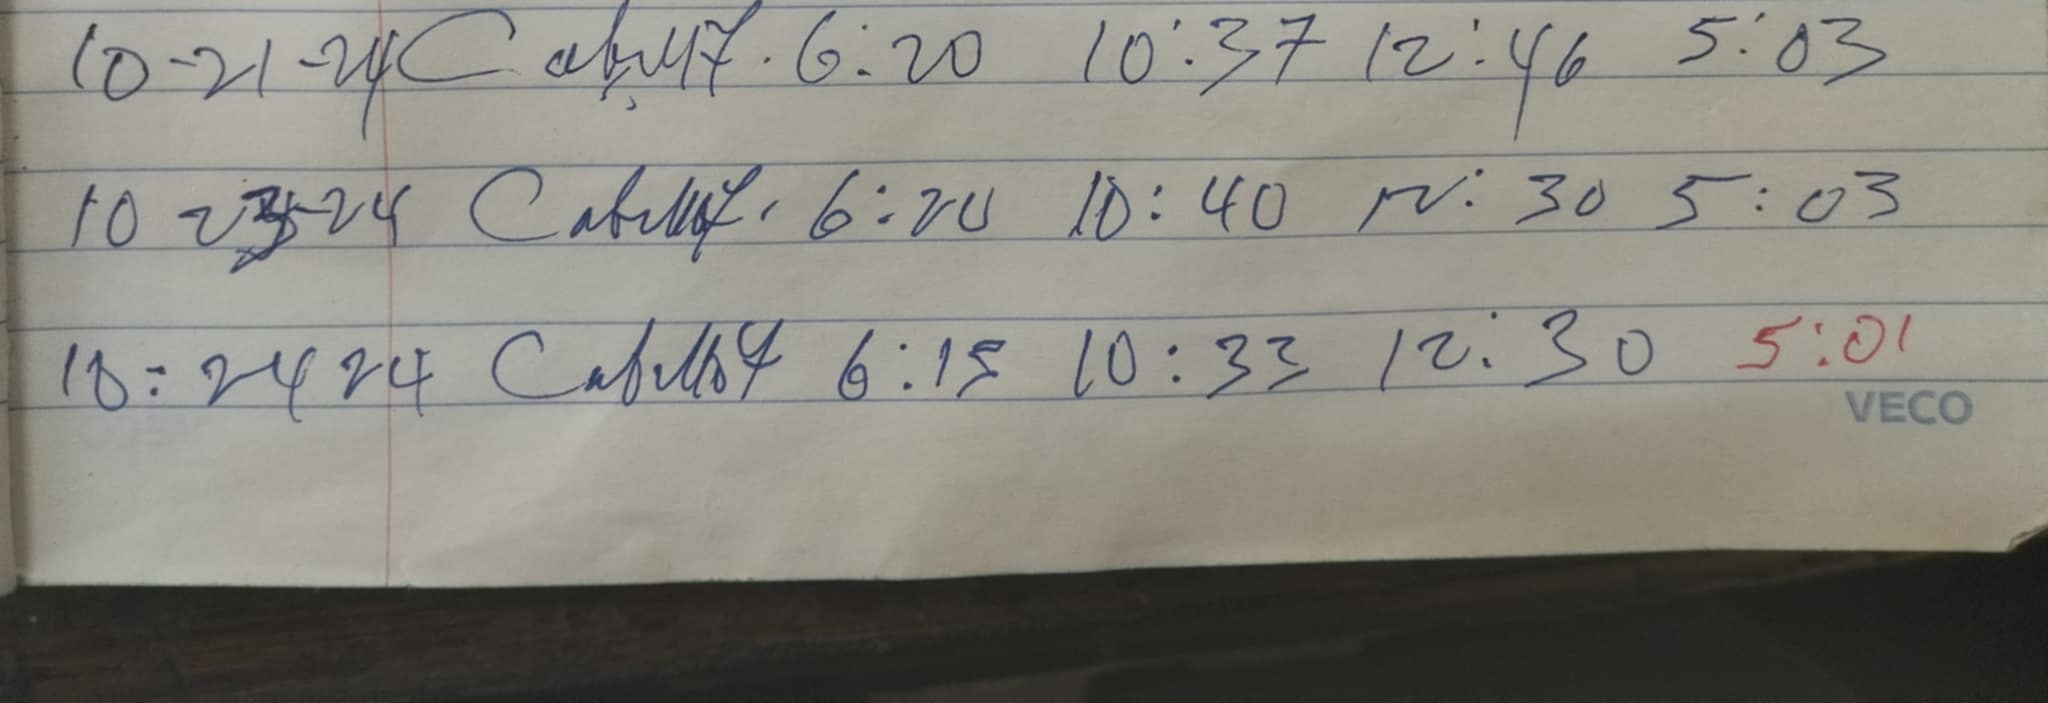 10-21-24 6:20 10:37 12:46 5:03
10 23-24 6:20 10:40 12:30 5:03
10:24 24 6:15 10:33 12:30 5:01
VECO